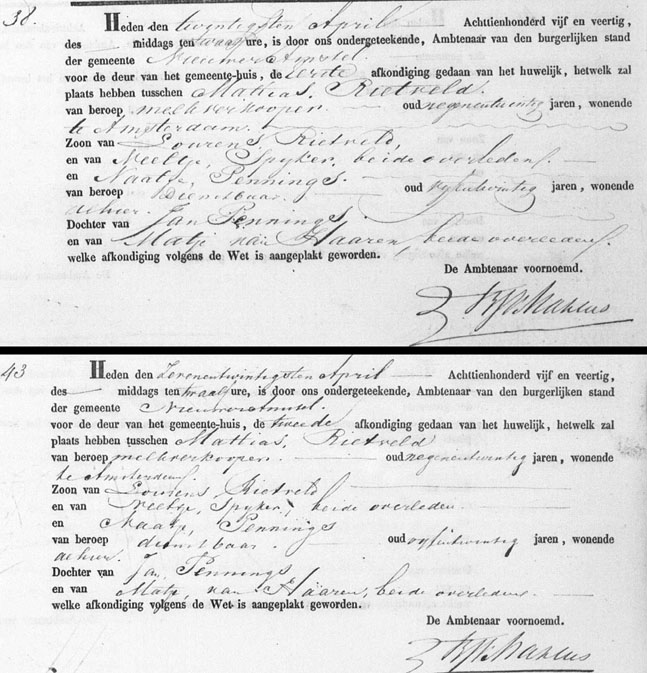 38.
Heden den twintigsten April Achttienhonderd vijf en veertig,
des middags ten twaalf ure, is door ons ondergeteekende, Ambtenaar van den burgerlijken stand
der gemeente Nieuwer Amstel.
voor de deur van het gemeente-huis, de eerste afkondiging gedaan van het huwelijk, hetwelk zal
plaats hebben tusschen Mattias, Rietveld.
van beroep melkverkooper. oud negenentwintig jaren, wonende
te Amsterdam.
Zoon van Lourens, Rietveld,
en van Neeltje, Spyker, beide overleden.
en Naatje, Pennings.
van beroep Dienstbaar. oud vyfentwintig jaren, wonende
alhier.
Dochter van Jan Pennings.
en van Matje van Haaren, beide overleden.
welke afkondiging volgens de Wet is aangeplakt geworden.
De Ambtenaar voornoemd.
43
Heden den Zevenentwintigsten April Achttienhonderd vijf en veertig,
des middags ten twaalf ure, is door ons ondergeteekende, Ambtenaar van den burgerlijken stand
der gemeente Nieuwer Amstel.
voor de deur van het gemeente-huis, de tweede afkondiging gedaan van het huwelijk, hetwelk zal
plaats hebben tusschen Mattias, Rietveld
van beroep melkverkooper. oud negenentwintig jaren, wonende
te Amsterdam.
Zoon van Lourens Rietveld
en van Neeltje, Spyker, beide overleden.
en Naatje, Pennings
van beroep dienstbaar. oud vyfentwintig jaren, wonende
alhier.
Dochter van Jan Pennings
en van Matje, van Haaren, beide overleden.
welke afkondiging volgens de Wet is aangeplakt geworden.
De Ambtenaar voornoemd.